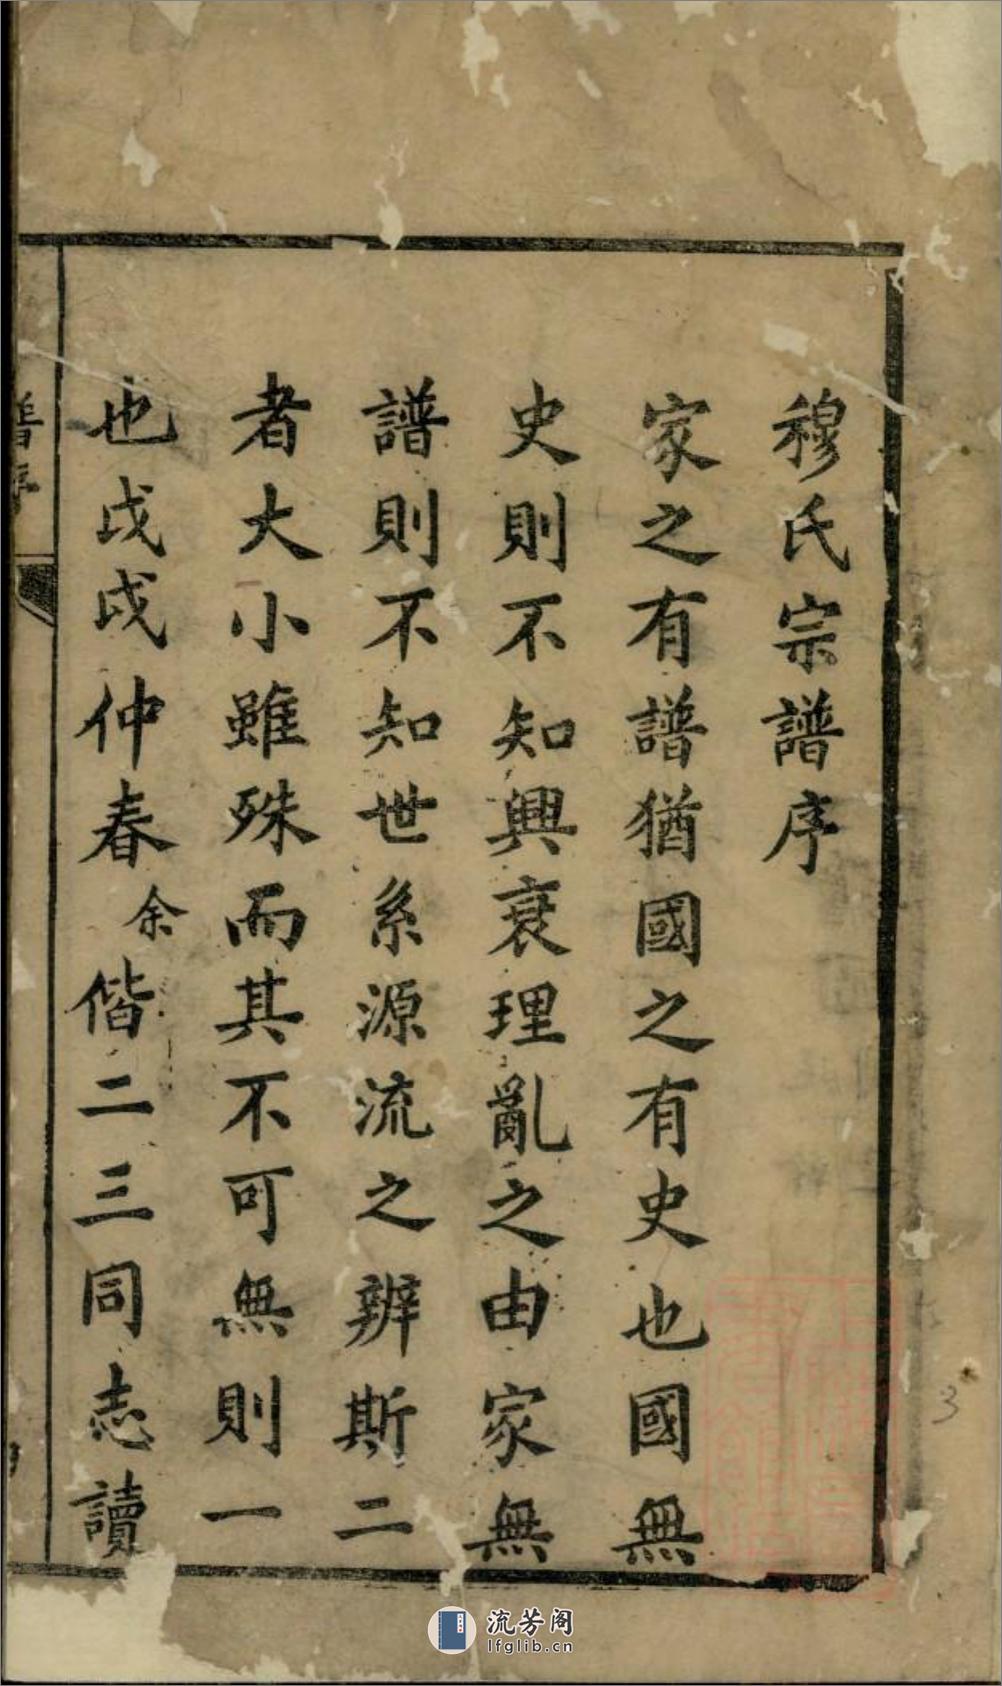 穆氏宗譜序
家之有譜猶國之有史也國無
史則不知興衰理亂之由家無
譜則不知世系源流之辨斯二
者大小雖殊而其不可無則一
也戊戌仲春余偕二三同志讀
譜序
3
流芳阁
lfglib.cn